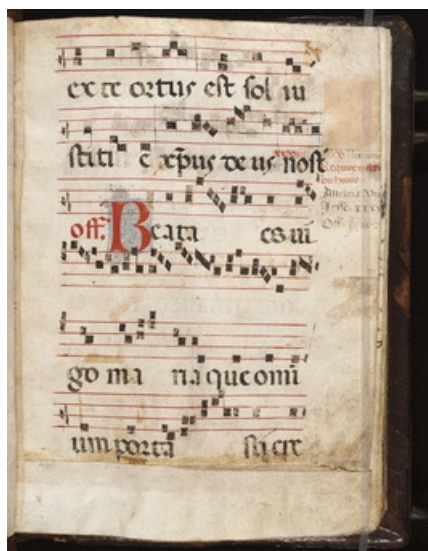 ex te ortus est sol iu
stiti e xp̄us de us nost̄
off. Beata es ui
go ma ria que omni
um porta sti cre